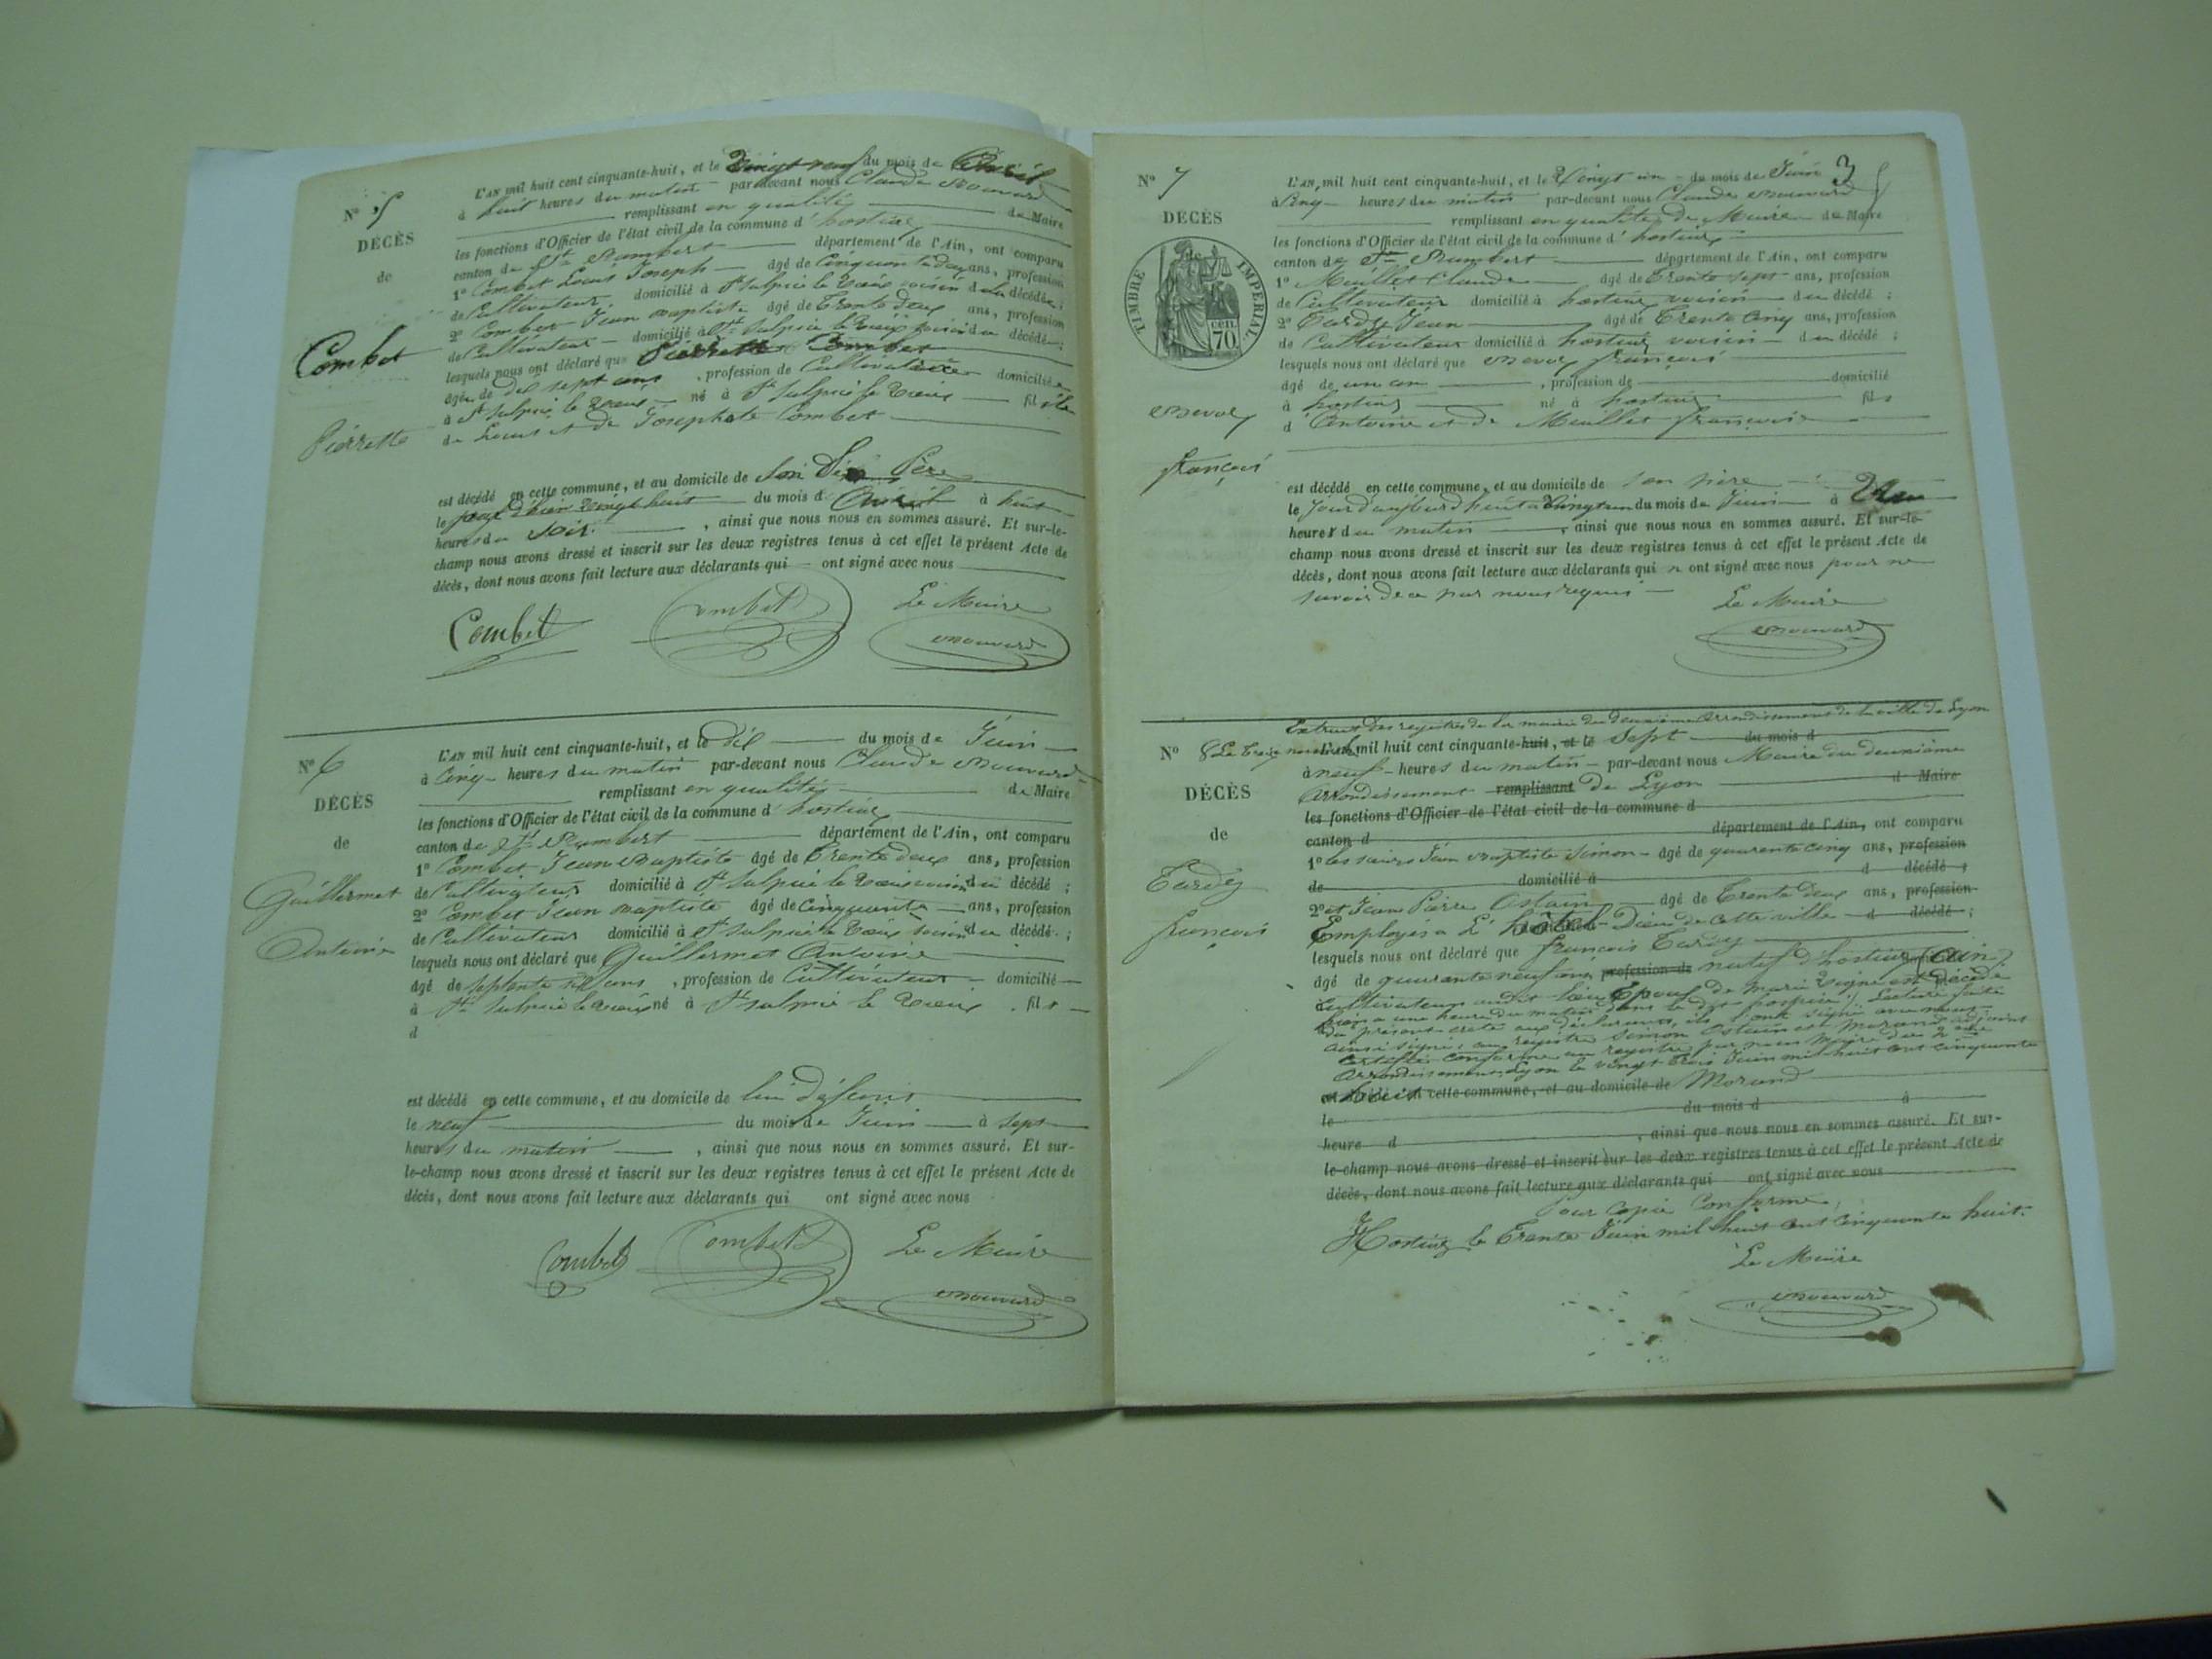 N° 5
DÉCÈS
de
Combet
Pierrette
L'AN mil huit cent cinquante-huit, et le Vingt neuf du mois de Avril
à huit heures du matin par-devant nous Claude Bouvard
remplissant en qualité de Maire
les fonctions d'Officier de l'état civil de la commune d'hostiaz
canton de St Rambert département de l'Ain, ont comparu
1° Combet Louis Joseph âgé de Cinquante ans, profession
de Cultivateur, domicilié à St Sulpice le Vieux voisin de la décédée;
2° Combet Jean Baptiste âgé de Trente deux ans, profession
de Cultivateur domicilié à St Sulpice le Vieux voisin du décédé;
lesquels nous ont déclaré que Pierrette Combet
âgée de dix sept ans, profession de Cultivatrice domiciliée
à St Sulpice le Vieux né à St Sulpice le Vieux fille
de Louis et de Josephete Combet
est décédé en cette commune, et au domicile de Son Père
le jour d'hier Vingt huit du mois d'Avril à huit
heures du Soir, ainsi que nous nous en sommes assuré. Et sur-le-
champ nous avons dressé et inscrit sur les deux registres tenus à cet effet le présent Acte de
décès, dont nous avons fait lecture aux déclarants qui ont signé avec nous
Combet Combet Le Maire
Bouvard
N° 6
DÉCÈS
de
Guillermet
Antoine
L'AN mil huit cent cinquante-huit, et le dix du mois de Juin
à Cinq heures du matin par-devant nous Claude Bouvard
remplissant en qualité de Maire
les fonctions d'Officier de l'état civil de la commune d'hostiaz
canton de St Rambert département de l'Ain, ont comparu
1° Combet Jean Baptiste âgé de Trente deux ans, profession
de Cultivateur domicilié à St Sulpice le Vieux voisin du décédé;
2° Combet Jean Baptiste âgé de Cinquante ans, profession
de Cultivateur domicilié à St Sulpice le Vieux voisin du décédé;
lesquels nous ont déclaré que Guillermet Antoine
âgé de septante ans, profession de Cultivateur domicilié
à St Sulpice le Vieux né à St Sulpice le Vieux, fils
d
est décédé en cette commune, et au domicile de
le neuf du mois de Juin à Sept
heures du matin, ainsi que nous nous en sommes assuré. Et sur-
le-champ nous avons dressé et inscrit sur les deux registres tenus à cet effet le présent Acte de
décès, dont nous avons fait lecture aux déclarants qui ont signé avec nous
Combet Combet Le Maire
Bouvard
3
N° 7
DÉCÈS
de
TIMBRE IMPERIAL
70 cen.
François
L'AN mil huit cent cinquante-huit, et le Vingt un du mois de Juin
à Cinq heures du matin par-devant nous Claude Bouvard
remplissant en qualité de Maire de Maire
les fonctions d'Officier de l'état civil de la commune d'hostiaz
canton de St Rambert département de l'Ain, ont comparu
1° Meillet Claude âgé de Trente Sept ans, profession
de Cultivateur domicilié à hostiaz voisin du décédé;
2° Tardy Jean âgé de Trente Cinq ans, profession
de Cultivateur domicilié à hostiaz voisin du décédé;
lesquels nous ont déclaré que François
âgé de un an, profession de domicilié
à hostiaz né à hostiaz fils
d'Antoine et de Meillet Françoise
est décédé en cette commune, et au domicile de son père
le Jour d'aujourd'huit Vingt un du mois de Juin à Une
heures du matin, ainsi que nous nous en sommes assuré. Et sur-le-
champ nous avons dressé et inscrit sur les deux registres tenus à cet effet le présent Acte de
décès, dont nous avons fait lecture aux déclarants qui n'ont signé avec nous pour ne
savoir de ce par nous requis
Le Maire
Bouvard
Extrait des registres de la mairie du deuxième Arrondissement de la ville de Lyon
N° 8
DÉCÈS
de
Tardy
François
L'AN mil huit cent cinquante-huit, et le Sept du mois d
à neuf heures du matin par-devant nous Maire du deuxième
Arrondissement remplissant de Lyon d Maire
les fonctions d'Officier de l'état civil de la commune d
canton d département de l'Ain, ont comparu
1° les sieurs Jean Baptiste Simon âgé de quarante cinq ans, profession
de domicilié à d décédé;
2° et Jean Pierre Ostain âgé de Trente deux ans, profession
Employés à L'hôtel Dieu de cette ville d décédé;
lesquels nous ont déclaré que François Tardy
âgé de quarante neuf ans profession de natif d'hostiaz (Ain)
Cultivateur audit lieu Epoux de Marie Vigne est décédé
à une heure du matin dans le dit hospice. Lecture faite
du présent acte aux déclarants, ils l'ont signé avec nous
ainsi signé au registre Simon Ostain et Morand adjoint
Certifié conforme au registre par nous Maire du 2me
Arrondissement Lyon le vingt trois Juin mil huit cent cinquante
huit cette commune, et au domicile de Morand
le du mois d à
heure d, ainsi que nous nous en sommes assuré. Et sur-
le-champ nous avons dressé et inscrit sur les deux registres tenus à cet effet le présent Acte de
décès, dont nous avons fait lecture aux déclarants qui ont signé avec nous
Pour Copie Conforme,
Hostiaz le Trente Juin mil huit cent cinquante huit.
Le Maire
Bouvard